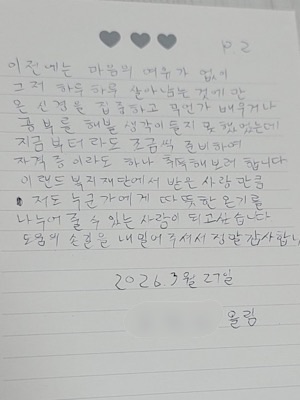 P.2
이전에는 마음의 여유가 없이
그저 하루하루 살아남는 것에만
온 신경을 집중하고 무언가 배우거나
공부를 해볼 생각이 들지 못했었는데
지금부터라도 조금씩 준비하여
자격증이라도 하나 취득해보려 합니다
이랜드복지재단에서 받은 사랑만큼
저도 누군가에게 따뜻한 온기를
나누어 줄 수 있는 사람이 되고싶습니다
도움의 손길을 내밀어주셔서 정말 감사합니
2026.3월 27일
올림